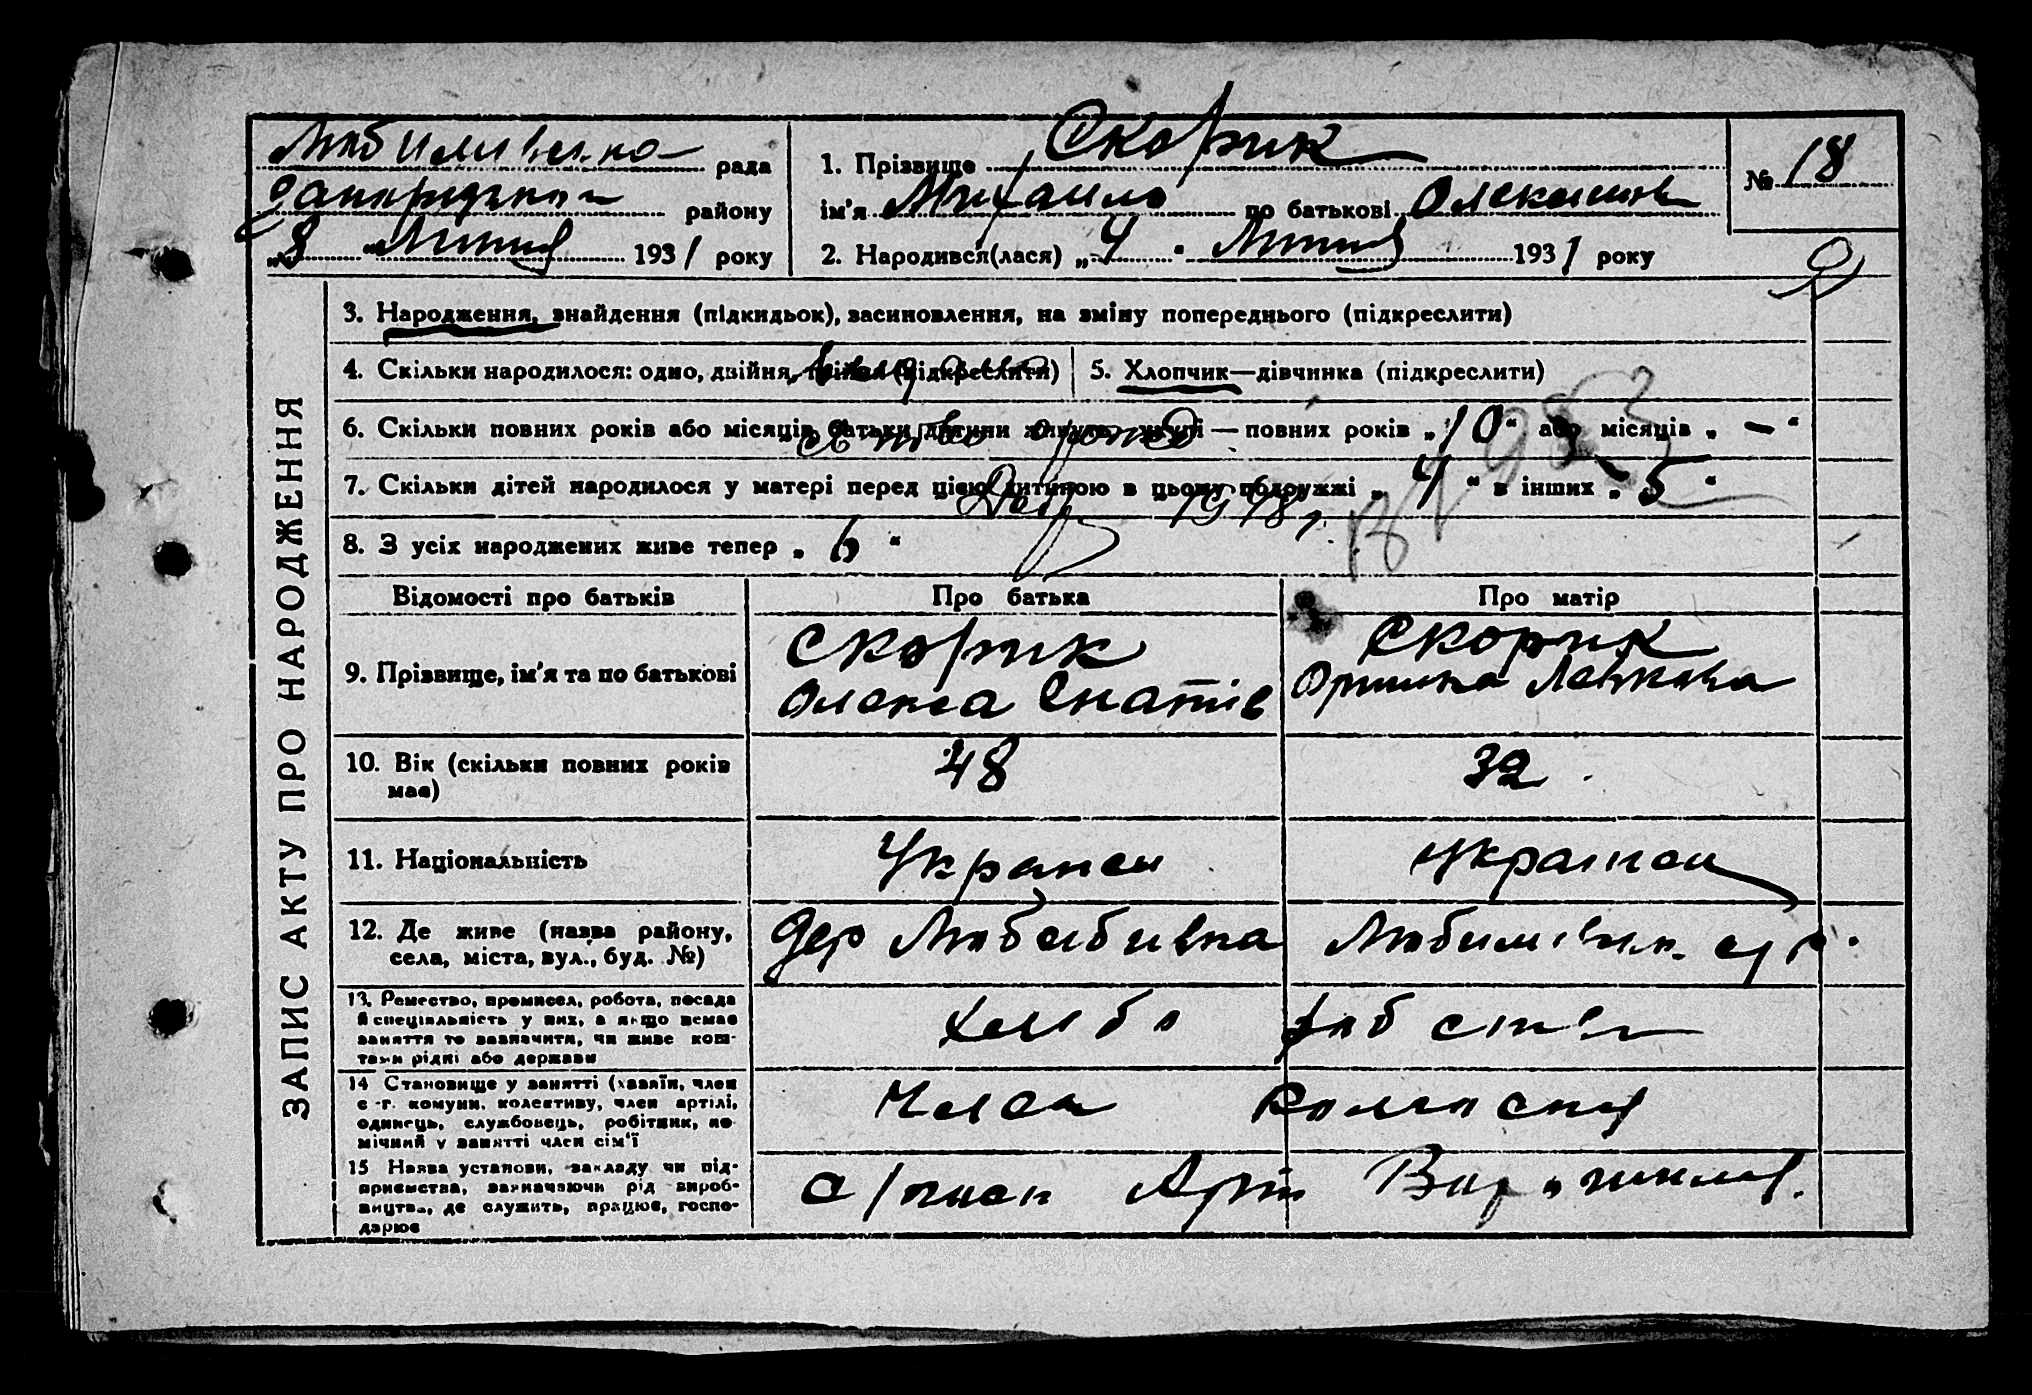 Любимівська рада
Запорізького району
„8“ Липня 1931 року
1. Прізвище Скорик
ім'я Михаило по батькові Олексіїв
2. Народився(лася) „4“ Липня 1931 року
№ 18
ЗАПИС АКТУ ПРО НАРОДЖЕННЯ
3. Народження, знайдення (підкидьок), засиновлення, на зміну попереднього (підкреслити)
4. Скільки народилося: одно, двійня, трійня (підкреслити)
5. Хлопчик—дівчинка (підкреслити)
6. Скільки повних років або місяців батьки дитини живуть вкупі — повних років „10“ або місяців „—“
7. Скільки дітей народилося у матері перед цією дитиною в цьому подружжі „4“ в інших „5“
1948 г.
8. З усіх народжених живе тепер „6“
Відомості про батьків
Про батька
Про матір
9. Прізвище, ім'я та по батькові
Скорик
Олекса Гнатів
Скорик
Оришка Левкова
10. Вік (скільки повних років має)
48
32
11. Національність
Українец
Українец
12. Де живе (назва району,
села, міста, вул., буд. №)
дер Любимівка
Любимівск. с/р.
13. Ремество, промисел, робота, посада
й спеціяльність у них, а якщо немає
заняття то зазначити, чи живе кош-
тами рідні або держави
Хлібо робство
14 Становище у занятті (хазяїн, член
с.-г. комуни, колективу, член артілі,
одинець, службовець, робітник, по-
мічний у занятті член сім'ї
Член Колгоспу
15 Назва установи, закладу чи під-
приємства, зазначаючи рід вироб-
ництва, де служить, працює, госпо-
дарює
Ворошилов.